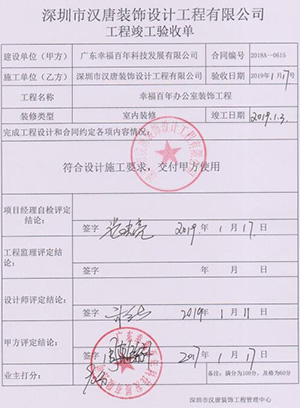 深圳市汉唐装饰设计工程有限公司
工程竣工验收单
建设单位（甲方） 广东幸福百年科技发展有限公司 合同编号 2018A--0615
施工单位（乙方） 深圳市汉唐装饰设计工程有限公司 验收日期 2019年1月17日
工程名称 幸福百年办公室装饰工程
装修类型 室内装修 竣工日期 2019.1.3
完成工程设计和合同约定各项内容情况：
符合设计施工要求，交付甲方使用
项目经理自检评定
结论：
签字 2019年1月17日
工程监理评定结
论：
签字 年 月 日
设计师评定结论：
签字 2019年1月11日
甲方评定结论：
签字 1月17日
业主打分：
备注：满分为100分，及格为60分
深圳市汉唐装饰工程管理中心